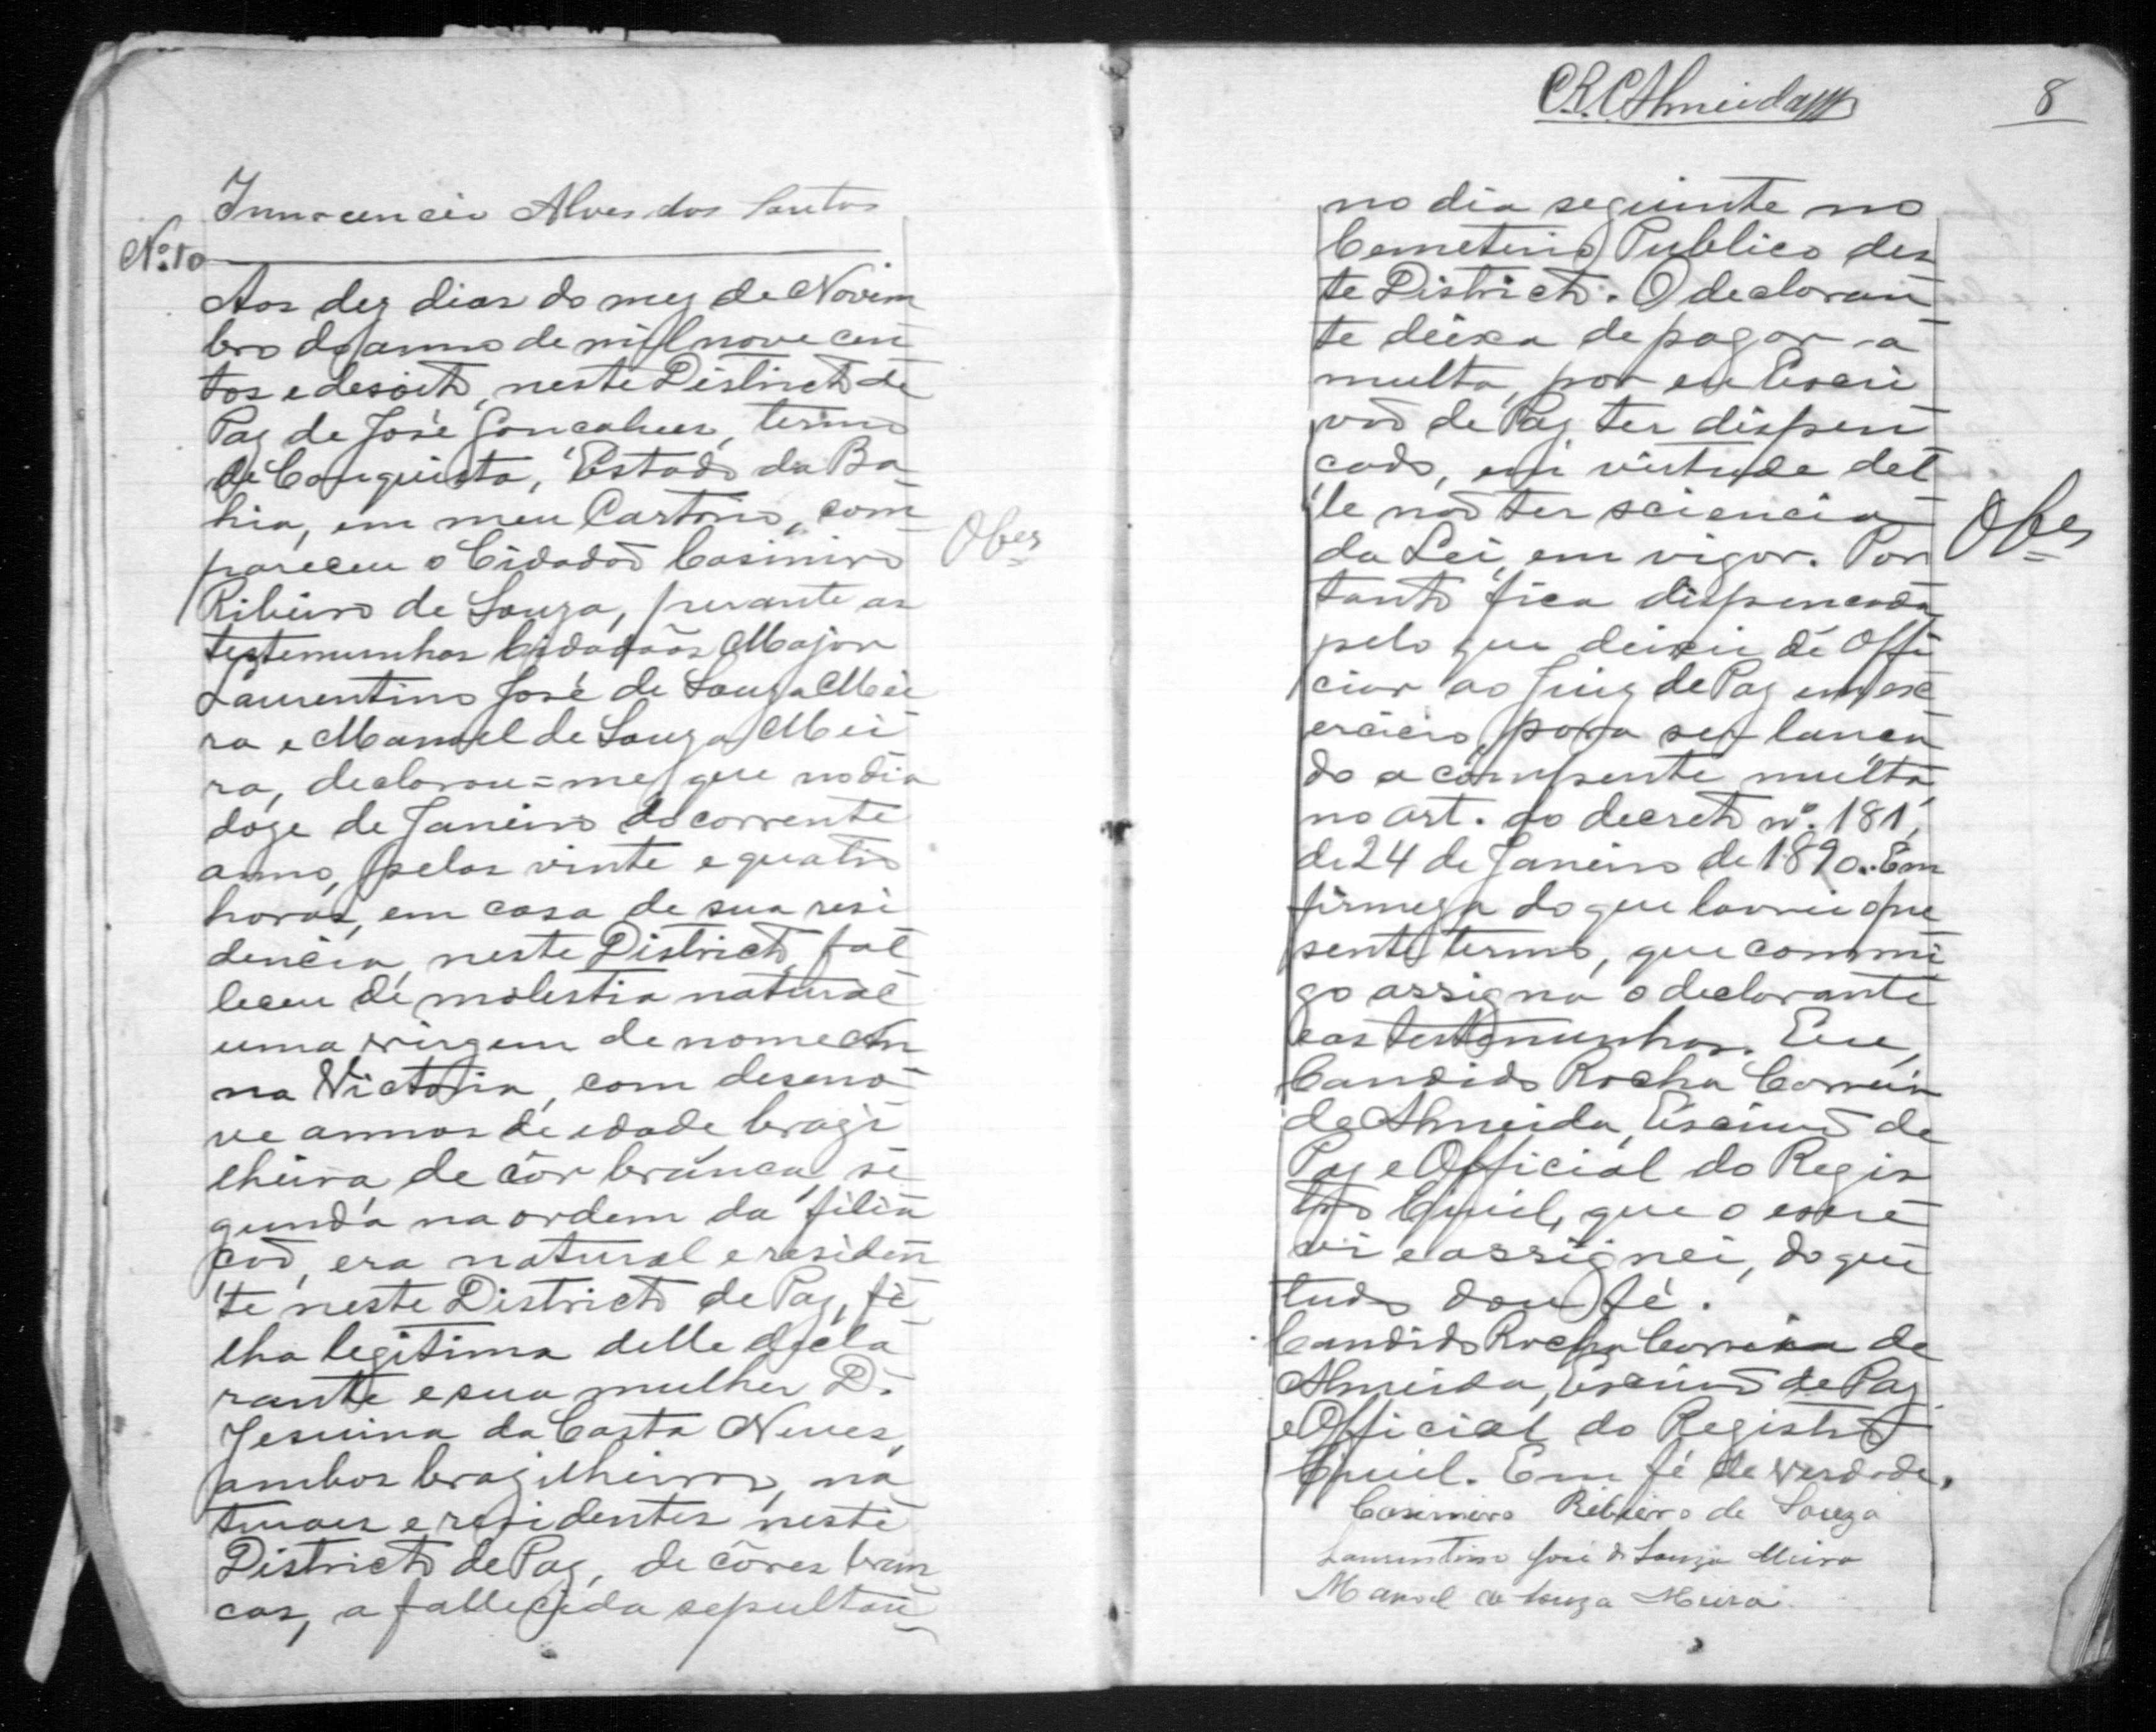 Innocencio Alves dos Santos
Nº.10
Aos dez dias do mez de Novem
bro do anno de mil nove cen
tos e desoito, neste Districto de
Paz de José Gonçalves, termo
de Conquista, Estado da Ba
hia, em meu Cartorio, com
pareceu o Cidadaõ Casimiro
Ribeiro de Souza, perante as
testemunhas Cidadaõs Major
Laurentino José de Souza Mei
ra e Manoel de Souza Mei
ra, declarou=me que no dia
doze de Janeiro do corrente
anno, pelas vinte e quatro
horas, em casa de sua resi
dencia, neste Districto, fal
leceu de molestia natural
uma virgem de nome An
na Victoria, com deseno
ve annos de edade, brazi
lheira, de côr branca, se
gunda na ordem da filia
çaõ, era natural e residen
te neste Districto de Paz, fi
lha legitima delle decla
rante e sua mulher D.
Jesuina da Costa Neves,
ambos brazilheiros, na
turaes e residentes neste
Districto de Paz, de côres bran
cas, a fallecida sepultou
Obes
C.R.C.Almeida
8
no dia seguinte no
Cemeterio Publico des
te Districto. O declaran
te deixa de pagar a
multa, por eu Escri
vaõ de Paz ter dispen
çado, em virtude del
le naõ ter sciencia
da Lei, em vigor. Por
tanto fica dispençada
pelo que deixei de Offi
ciar ao Juiz de Paz em ex
ercicio, para ser lança
do a compente multa,
no art. do decreto nº. 181,
de 24 de Janeiro de 1890. Em
firmeza do que lavrei o pre
sente termo, que commi
go assigna o declarante
e as testemunhas. Eu,
Candido Rocha Correia
de Almeida, Escrivaõ de
Paz e Official do Regis
tro Civil, que o escre
vi e assignei, do que
tudo dou fé.
Candido Rocha Correia de
Almeida, Escrivaõ de Paz
e Official do Registro
Civil. Em fé de verdade,
Casimiro Ribeiro de Souza
Laurentino José de Souza Meira
Manoel de Souza Meira
Obes